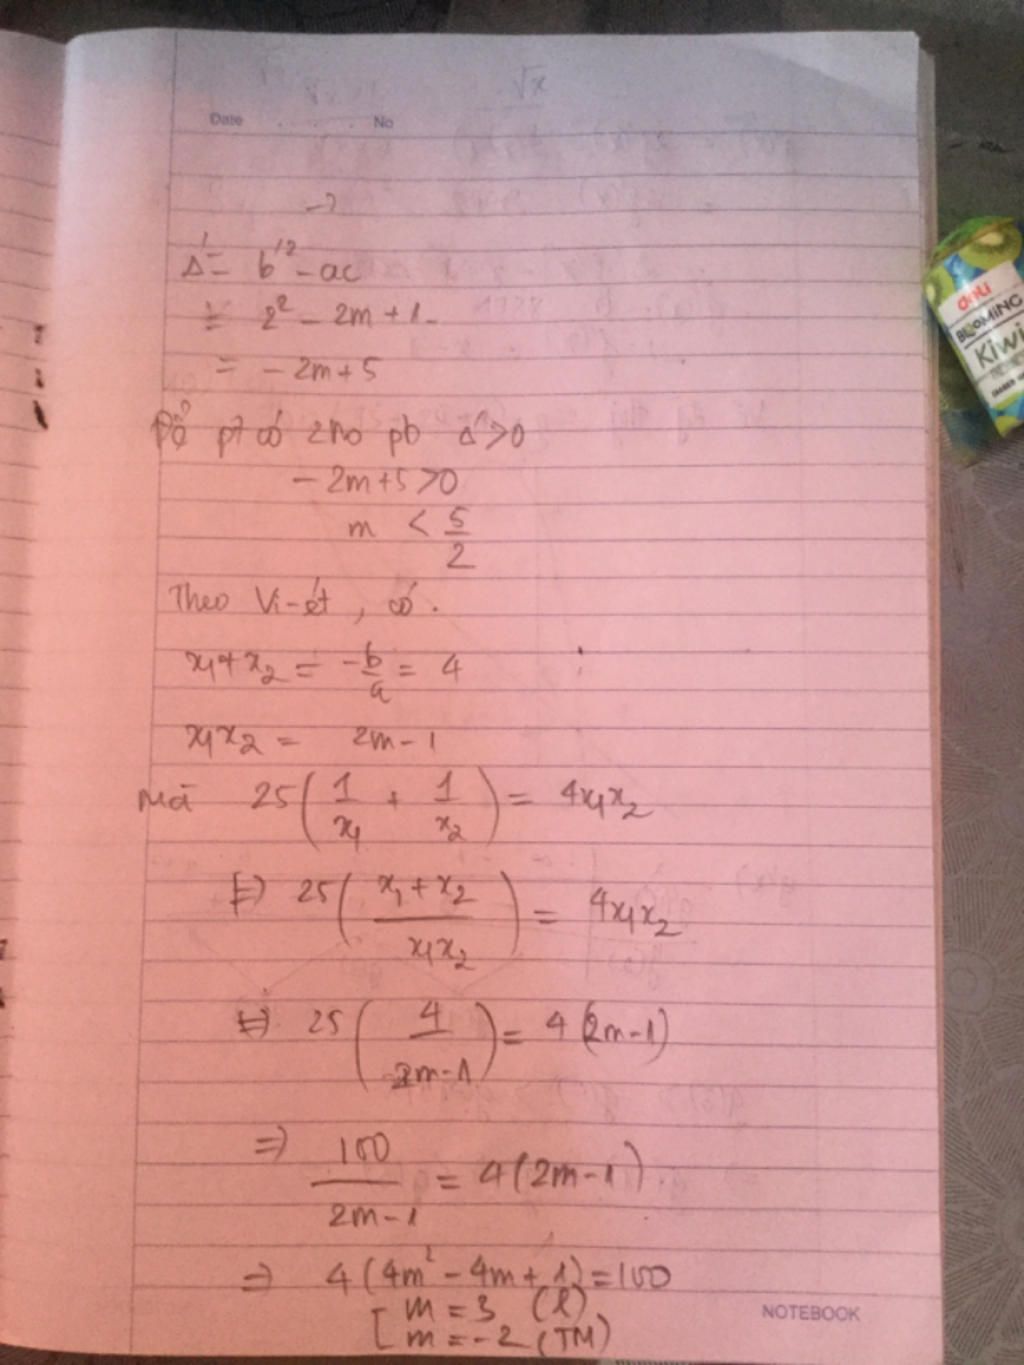 Date . . . No
Δ' = b'² - ac
= 2² - 2m + 1
= - 2m + 5
Để pt có 2 no pb Δ' > 0
- 2m + 5 > 0
m < 5/2
Theo Vi-ét, có.
x₁ + x₂ = -b/a = 4
x₁x₂ = 2m - 1
Mà 25(1/x₁ + 1/x₂) = 4x₁x₂
⇔ 25((x₁ + x₂)/(x₁x₂)) = 4x₁x₂
⇔ 25(4/(2m-1)) = 4(2m-1)
⇒ 100/(2m-1) = 4(2m-1)
⇒ 4(4m² - 4m + 1) = 100
[ m = 3 (l)
m = -2 (TM)
NOTEBOOK
deli
BLOOMING
Kiwi